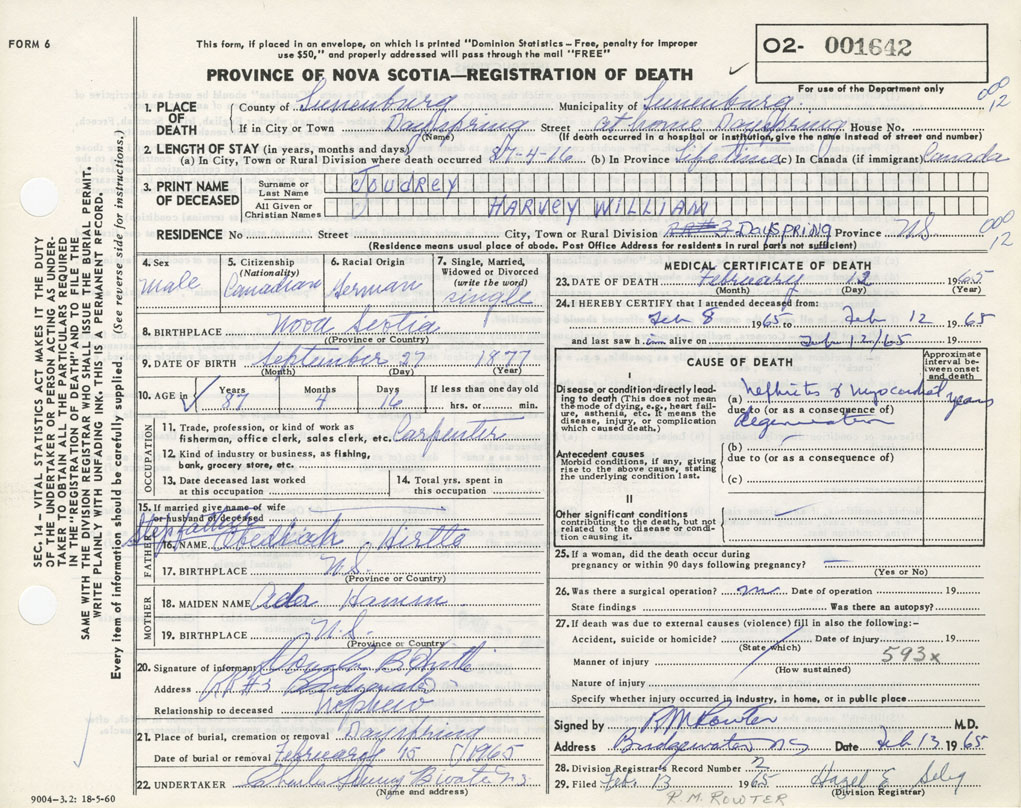 FORM 6
This form, if placed in an envelope, on which is printed "Dominion Statistics – Free, penalty for improper
use $50," and properly addressed will pass through the mail "FREE"
O2- 001642
PROVINCE OF NOVA SCOTIA—REGISTRATION OF DEATH
For use of the Department only
1. PLACE OF DEATH
County of Lunenburg Municipality of Lunenburg
If in City or Town Dayspring Street at home Dayspring House No.
(Name) (If death occurred in a hospital or institution, give the name instead of street and number)
2. LENGTH OF STAY (in years, months and days)
(a) In City, Town or Rural Division where death occurred 87-4-16 (b) In Province Lifetime (c) In Canada (if immigrant) Canada
3. PRINT NAME OF DECEASED
Surname or Last Name JOUDREY
All Given or Christian Names HARVEY WILLIAM
RESIDENCE No Street City, Town or Rural Division DAYSPRING Province NS
(Residence means usual place of abode. Post Office Address for residents in rural parts not sufficient)
000
12
000
12
SEC. 14 – VITAL STATISTICS ACT MAKES IT THE DUTY
OF THE UNDERTAKER OR PERSON ACTING AS UNDER-
TAKER TO OBTAIN ALL THE PARTICULARS REQUIRED
IN THE "REGISTRATION OF DEATH" AND TO FILE THE
SAME WITH THE DIVISION REGISTRAR WHO SHALL ISSUE THE BURIAL PERMIT.
WRITE PLAINLY WITH UNFADING INK. THIS IS A PERMANENT RECORD.
Every item of information should be carefully supplied. (See reverse side for instructions.)
4. Sex
male
5. Citizenship
(Nationality)
Canadian
6. Racial Origin
German
7. Single, Married,
Widowed or Divorced
(write the word)
single
8. BIRTHPLACE Nova Scotia
(Province or Country)
9. DATE OF BIRTH September 27 1877
(Month) (Day) (Year)
10. AGE in
Years
87
Months
4
Days
16
If less than one day old
hrs. or min.
OCCUPATION
11. Trade, profession, or kind of work as
fisherman, office clerk, sales clerk, etc. Carpenter
12. Kind of industry or business, as fishing,
bank, grocery store, etc.
13. Date deceased last worked
at this occupation
14. Total yrs. spent in
this occupation
15. If married give name of wife
or husband of deceased
Stepfather
FATHER
16. NAME Obediah Hirtle
17. BIRTHPLACE N.S.
(Province or Country)
MOTHER
18. MAIDEN NAME Ada Hamm
19. BIRTHPLACE N.S.
(Province or Country)
20. Signature of informant B Hirtle
Address RR#3
Relationship to deceased nephew
21. Place of burial, cremation or removal Dayspring
Date of burial or removal February 15 1965
22. UNDERTAKER Charles
(Name and address)
9004—3.2: 18-5-60
MEDICAL CERTIFICATE OF DEATH
23. DATE OF DEATH February 12 1965
(Month) (Day) (Year)
24. I HEREBY CERTIFY that I attended deceased from:
Feb 8 1965 to Feb 12 1965
and last saw him alive on Feb 12/65 19
CAUSE OF DEATH
Approximate
interval be-
tween onset
and death
I
Disease or condition directly lead-
ing to death (This does not mean
the mode of dying, e.g., heart fail-
ure, asthenia, etc. It means the
disease, injury, or complication
which caused death.)
(a) Nephritis & myocardial years
due to (or as a consequence of)
degeneration
Antecedent causes
Morbid conditions, if any, giving
rise to the above cause, stating
the underlying condition last.
(b)
due to (or as a consequence of)
(c)
II
Other significant conditions
contributing to the death, but not
related to the disease or condi-
tion causing it.
25. If a woman, did the death occur during
pregnancy or within 90 days following pregnancy?
(Yes or No)
26. Was there a surgical operation? no Date of operation 19
State findings Was there an autopsy?
27. If death was due to external causes (violence) fill in also the following:-
Accident, suicide or homicide? Date of injury 19
(State which)
Manner of injury 593x
(How sustained)
Nature of injury
Specify whether injury occurred in industry, in home, or in public place
Signed by R.M. Rowter M.D.
Address Bridgewater NS Date Feb 13 1965
28. Division Registrar's Record Number 2
29. Filed Feb. 13 1965 Hazel E. Selig
(Division Registrar)
R.M. ROWTER